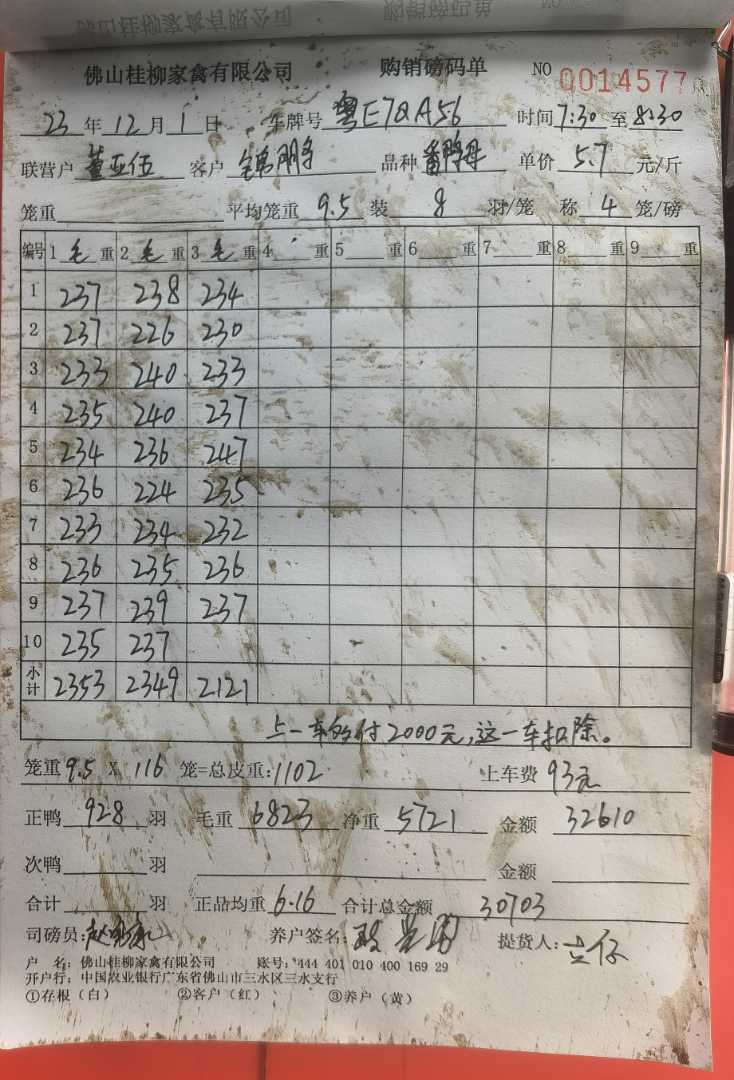 佛山桂柳家禽有限公司 购销磅码单 NO 0014577
23年12月1日 车牌号 粤E7QA56 时间7:30至8:30
联营户 董亚伍 客户 品种 番鸭母 单价 5.7 元/斤
笼重 平均笼重 9.5 装 8 羽/笼 称 4 笼/磅
编号 1 毛 重 2 毛 重 3 毛 重 4 重 5 重 6 重 7 重 8 重 9 重
1 237 238 234
2 237 226 230
3 233 240 233
4 235 240 237
5 234 236 247
6 236 224 235
7 233 234 232
8 236 235 236
9 237 239 237
10 235 237
小计 2353 2349 2121
上一车多付2000元,这一车扣除。
笼重 9.5 X 116 笼=总皮重:1102 上车费 93元
正鸭 928 羽 毛重 6823 净重 5721 金额 32610
次鸭 羽 金额
合计 羽 正品均重 6.16 合计总金额 30703
司磅员: 养户签名: 提货人:
户 名:佛山桂柳家禽有限公司 账号:444 401 010 400 169 29
开户行:中国农业银行广东省佛山市三水区三水支行
①存根(白) ②客户(红) ③养户(黄)